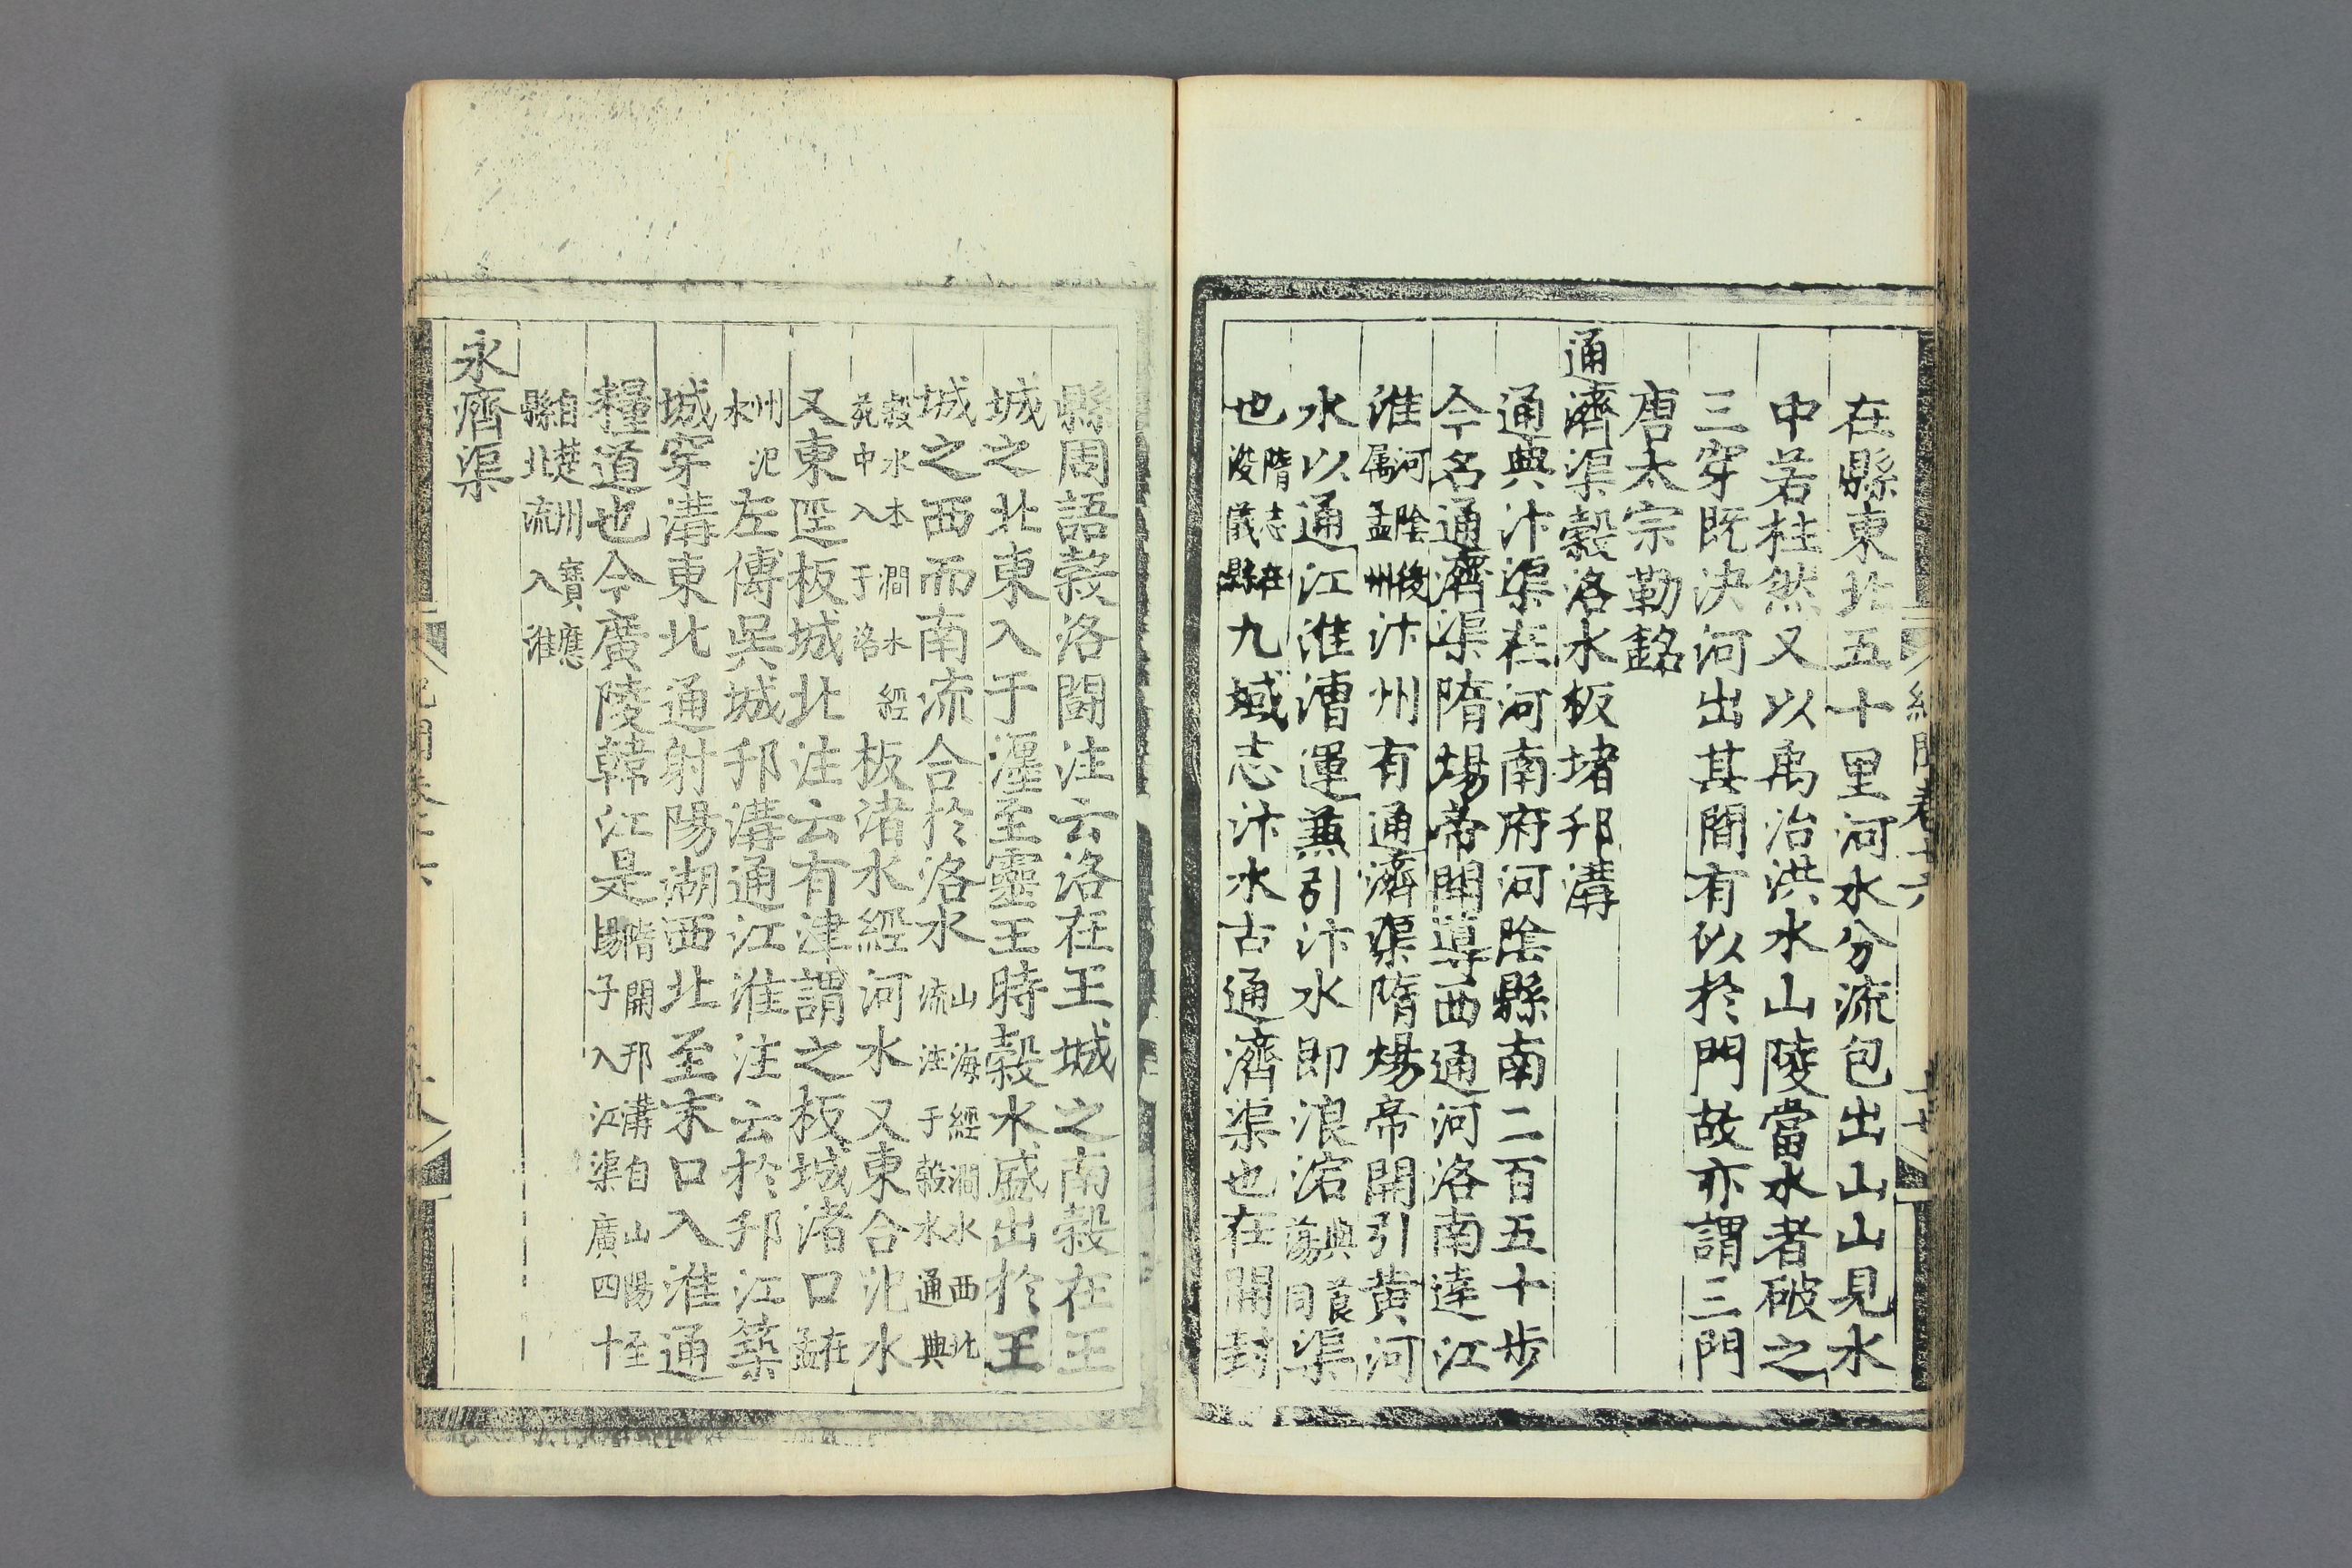 在縣東北五十里河水分流包出山山見水
中若柱然又以禹治洪水山陵當水者破之
三穿既决河出其間有似於門故亦謂三門
唐太宗勒銘
通濟渠穀洛水板堵邗溝
通典汴渠在河南府河陰縣南二百五十步
今名通濟渠隋煬帝開導西通河洛南達江
淮河陰後属孟州汴州有通濟渠隋煬帝開引黄河
水以通江淮漕運兼引汴水即浪宕與莨蕩同渠
也隋志在浚儀縣九域志汴水古通濟渠也在開封
縣周語穀洛鬪注云洛在王城之南穀在王
城之北東入于瀍至靈王時穀水盛出於王
城之西而南流合於洛水山海經澗水西北流注于穀水通典
穀水本澗水經苑中入于洛板渚水經河水又東合汜水
又東逕板城北注云有津謂之板城渚口在孟
州汜水左傳吳城邗溝通江淮注云於邗江築
城穿溝東北通射陽湖西北至末口入淮通
糧道也今廣陵韓江是隋開邗溝自山陽至陽子入江渠廣四十
自楚州寶應縣北流入淮
永濟渠